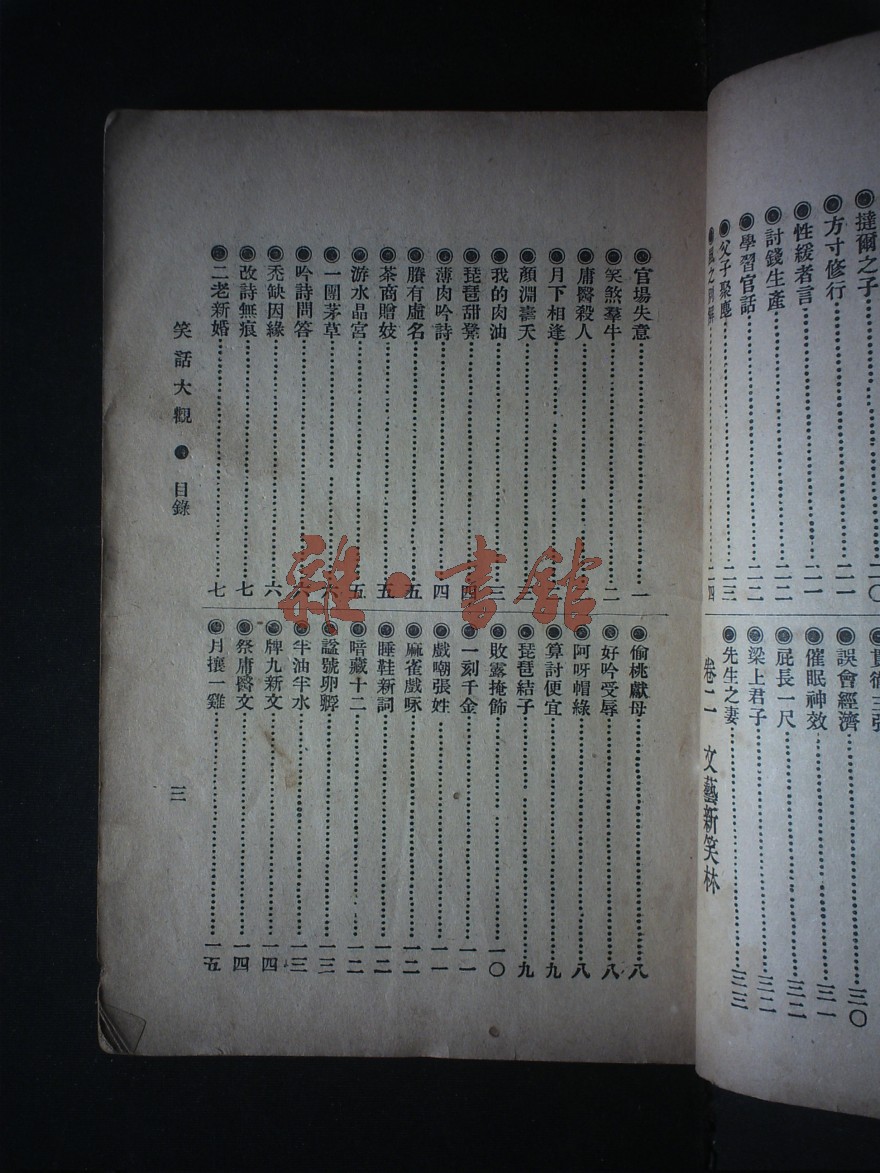 撻爾之子……二〇
方寸修行……二一
性緩者言……二一
討錢生產……二二
學習官話……二二
父子聚應……二三
二四
誤會經濟……三〇
催眠神效……三一
屁長一尺……三二
梁上君子……三二
先生之妻……三三
卷二 文藝新笑林
官場失意……一
笑煞羣牛……二
庸醫殺人
月下相逢
顏淵壽夭
我的肉油……三
琵琶甜漿……四
薄肉吟詩……四
膺有虛名……五
茶商贈妓……五
游水晶宮……五
一團茅草……六
吟詩問答……六
禿缺因緣……六
改詩無痕……七
二老新婚……七
偷桃獻母……八
好吟受辱……八
阿呀帽綠……八
算討便宜……九
琵琶結子……九
敗露掩飾……一〇
一刻千金……一一
戲嘲張姓……一一
麻雀戲咏……一二
睡鞋新詞……一二
暗藏十二……一二
謚號卵孵……一三
半油半水……一三
牌九新文……一四
祭庸醫文……一四
月攘一雞……一五
笑話大觀 目錄
三
雜·書館